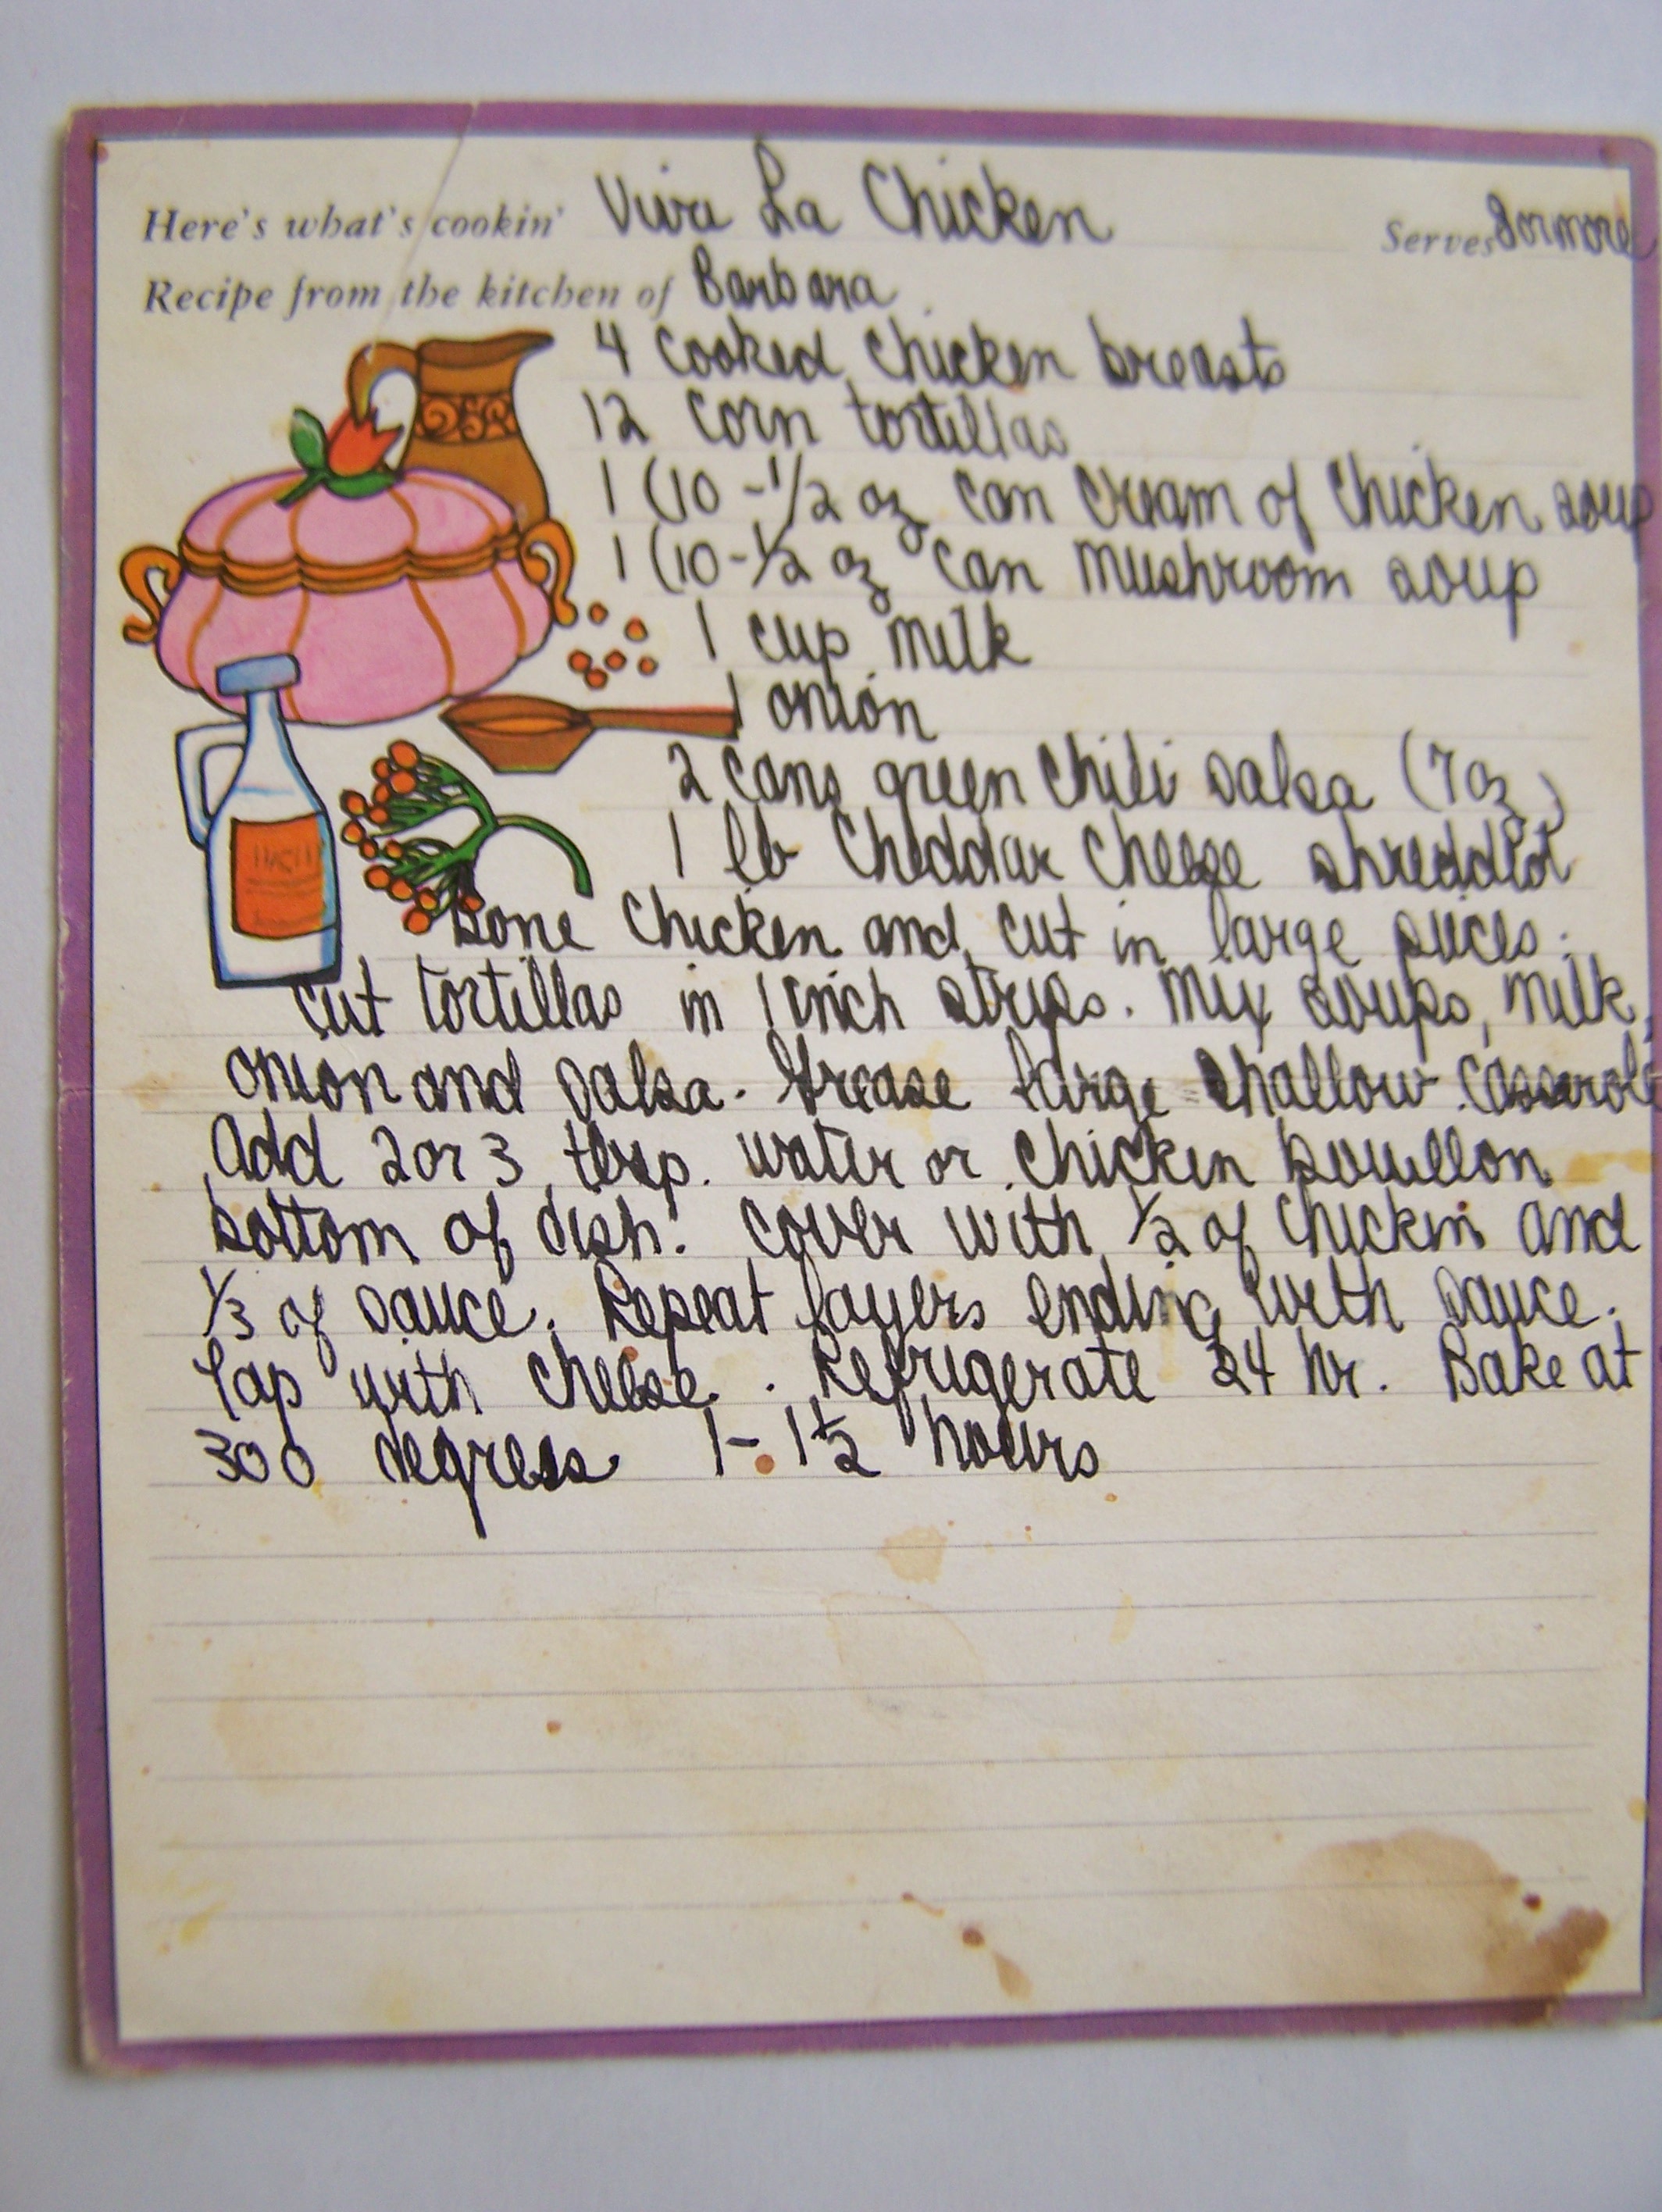 Here's what's cookin' Viva La Chicken Serves 8 or more
Recipe from the kitchen of Barbara
4 cooked chicken breasts
12 corn tortillas
1 (10-1/2 oz can cream of chicken soup
1 (10-1/2 oz can mushroom soup
1 cup milk
1 onion
2 cans green chili salsa (7 oz)
1 lb cheddar cheese shredded
Bone chicken and cut in large pieces.
Cut tortillas in 1 inch strips. Mix soups, milk,
onion and salsa. Grease large shallow casserole
Add 2 or 3 tbsp. water or chicken bouillon
bottom of dish. Cover with 1/2 of chicken and
1/3 of sauce. Repeat layers ending with sauce.
Top with cheese. Refrigerate 24 hr. Bake at
300 degrees 1-1 1/2 hours